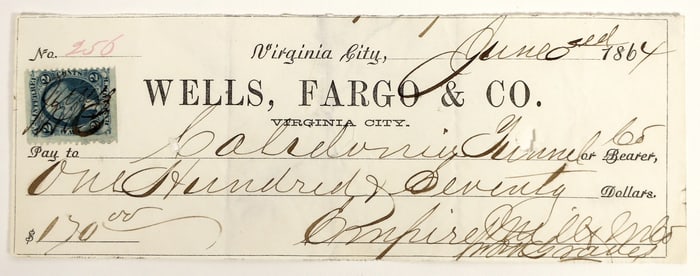 No. 256 Virginia City, June 3rd 1864
WELLS, FARGO & CO.
VIRGINIA CITY.
Pay to Caledonia Tunnel Co or Bearer,
One Hundred & Seventy Dollars.
$170.00 Empire Mill & M Co